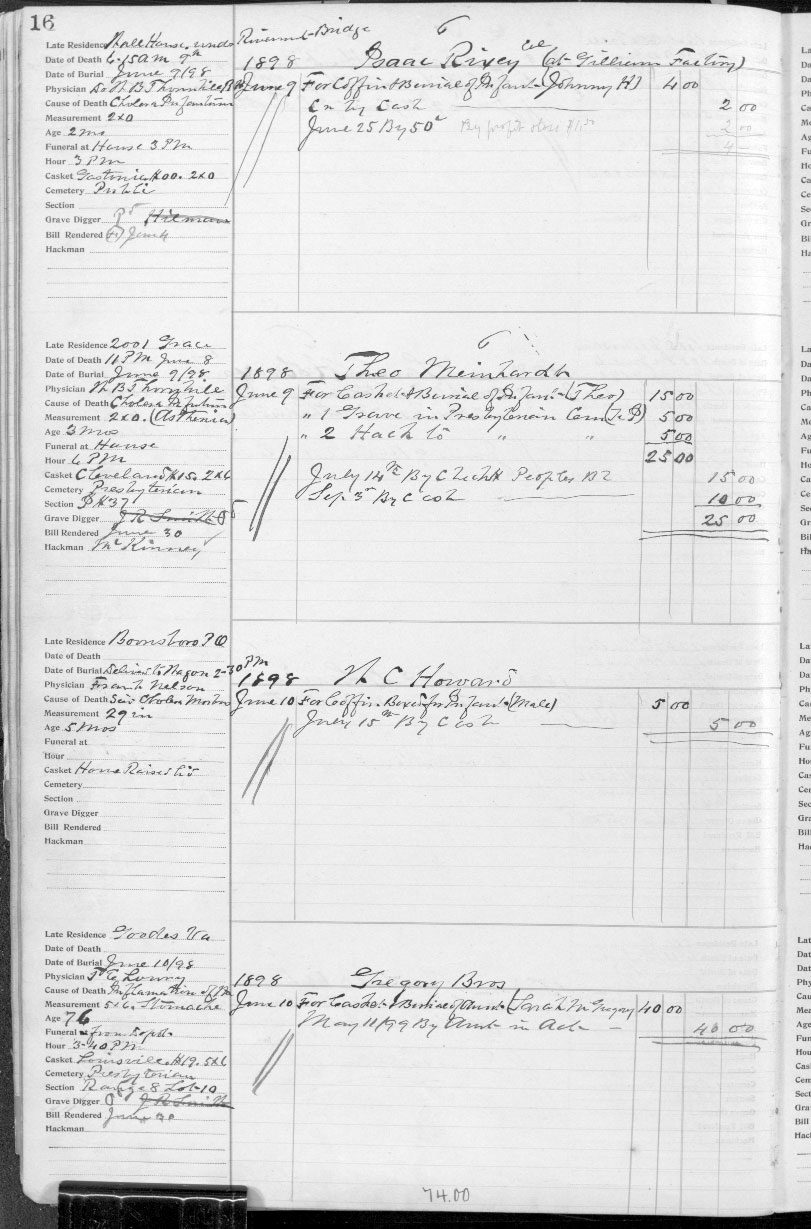 16
Late Residence Hall House, under Rivermont Bridge
Date of Death 6-15 AM 9th
Date of Burial June 9/98
Physician W B Thornhill
Cause of Death Cholera Infantum
Measurement 2x0
Age 2 mo
Funeral at House 3 PM
Hour 3 PM
Casket 2x0
Cemetery Public
Section
Grave Digger Hileman
Bill Rendered
Hackman
1898 Isaac Rixey Col (at Gilliam Factory)
June 9 For Coffin & Burial of Infant (Johnny H) 4 00
Cr by Cash 2 00
June 25 By 50c 2 00
4
Late Residence 2001 Grace
Date of Death 11 PM June 8
Date of Burial June 9/98
Physician W B Thornhill
Cause of Death Cholera Infantum
Measurement 2x0. (Asthenia)
Age 3 mos
Funeral at House
Hour 6 PM
Casket Cleveland 2x6
Cemetery Presbyterian
Section # 37
Grave Digger J R Smith
Bill Rendered June 30
Hackman McKinney
1898 Theo Meinhardt
June 9 For Casket & Burial of Infant (Theo) 15 00
" 1 Grave in Presbyterian Cem 5 00
" 2 Hack to " " 5 00
25 00
July 14th By Check Peoples Bk 15 00
Sep 3rd By Cash 10 00
25 00
Late Residence Boonsboro P O
Date of Death
Date of Burial Wagon 2-30 PM
Physician Frank Nelson
Cause of Death Cholera Morbus
Measurement 29 in
Age 5 Mos
Funeral at
Hour
Casket
Cemetery
Section
Grave Digger
Bill Rendered
Hackman
1898 W C Howard
June 10 For Coffin Infant (Male) 5 00
July 15th By Cash 5 00
Late Residence Goodes Va
Date of Death
Date of Burial June 10/98
Physician T E Lowry
Cause of Death Inflamation of
Measurement 5x6. Stomache
Age 76
Funeral at from Depot
Hour 3-40 PM
Casket Louisville #19. 5x6
Cemetery Presbyterian
Section Range 8 Lot 10
Grave Digger J R Smith
Bill Rendered June 30
Hackman
1898 Gregory Bros
June 10 For Casket & Burial of Aunt (Sarah M Gregory 40 00
May 11/99 By Amt in Act 40 00
74.00